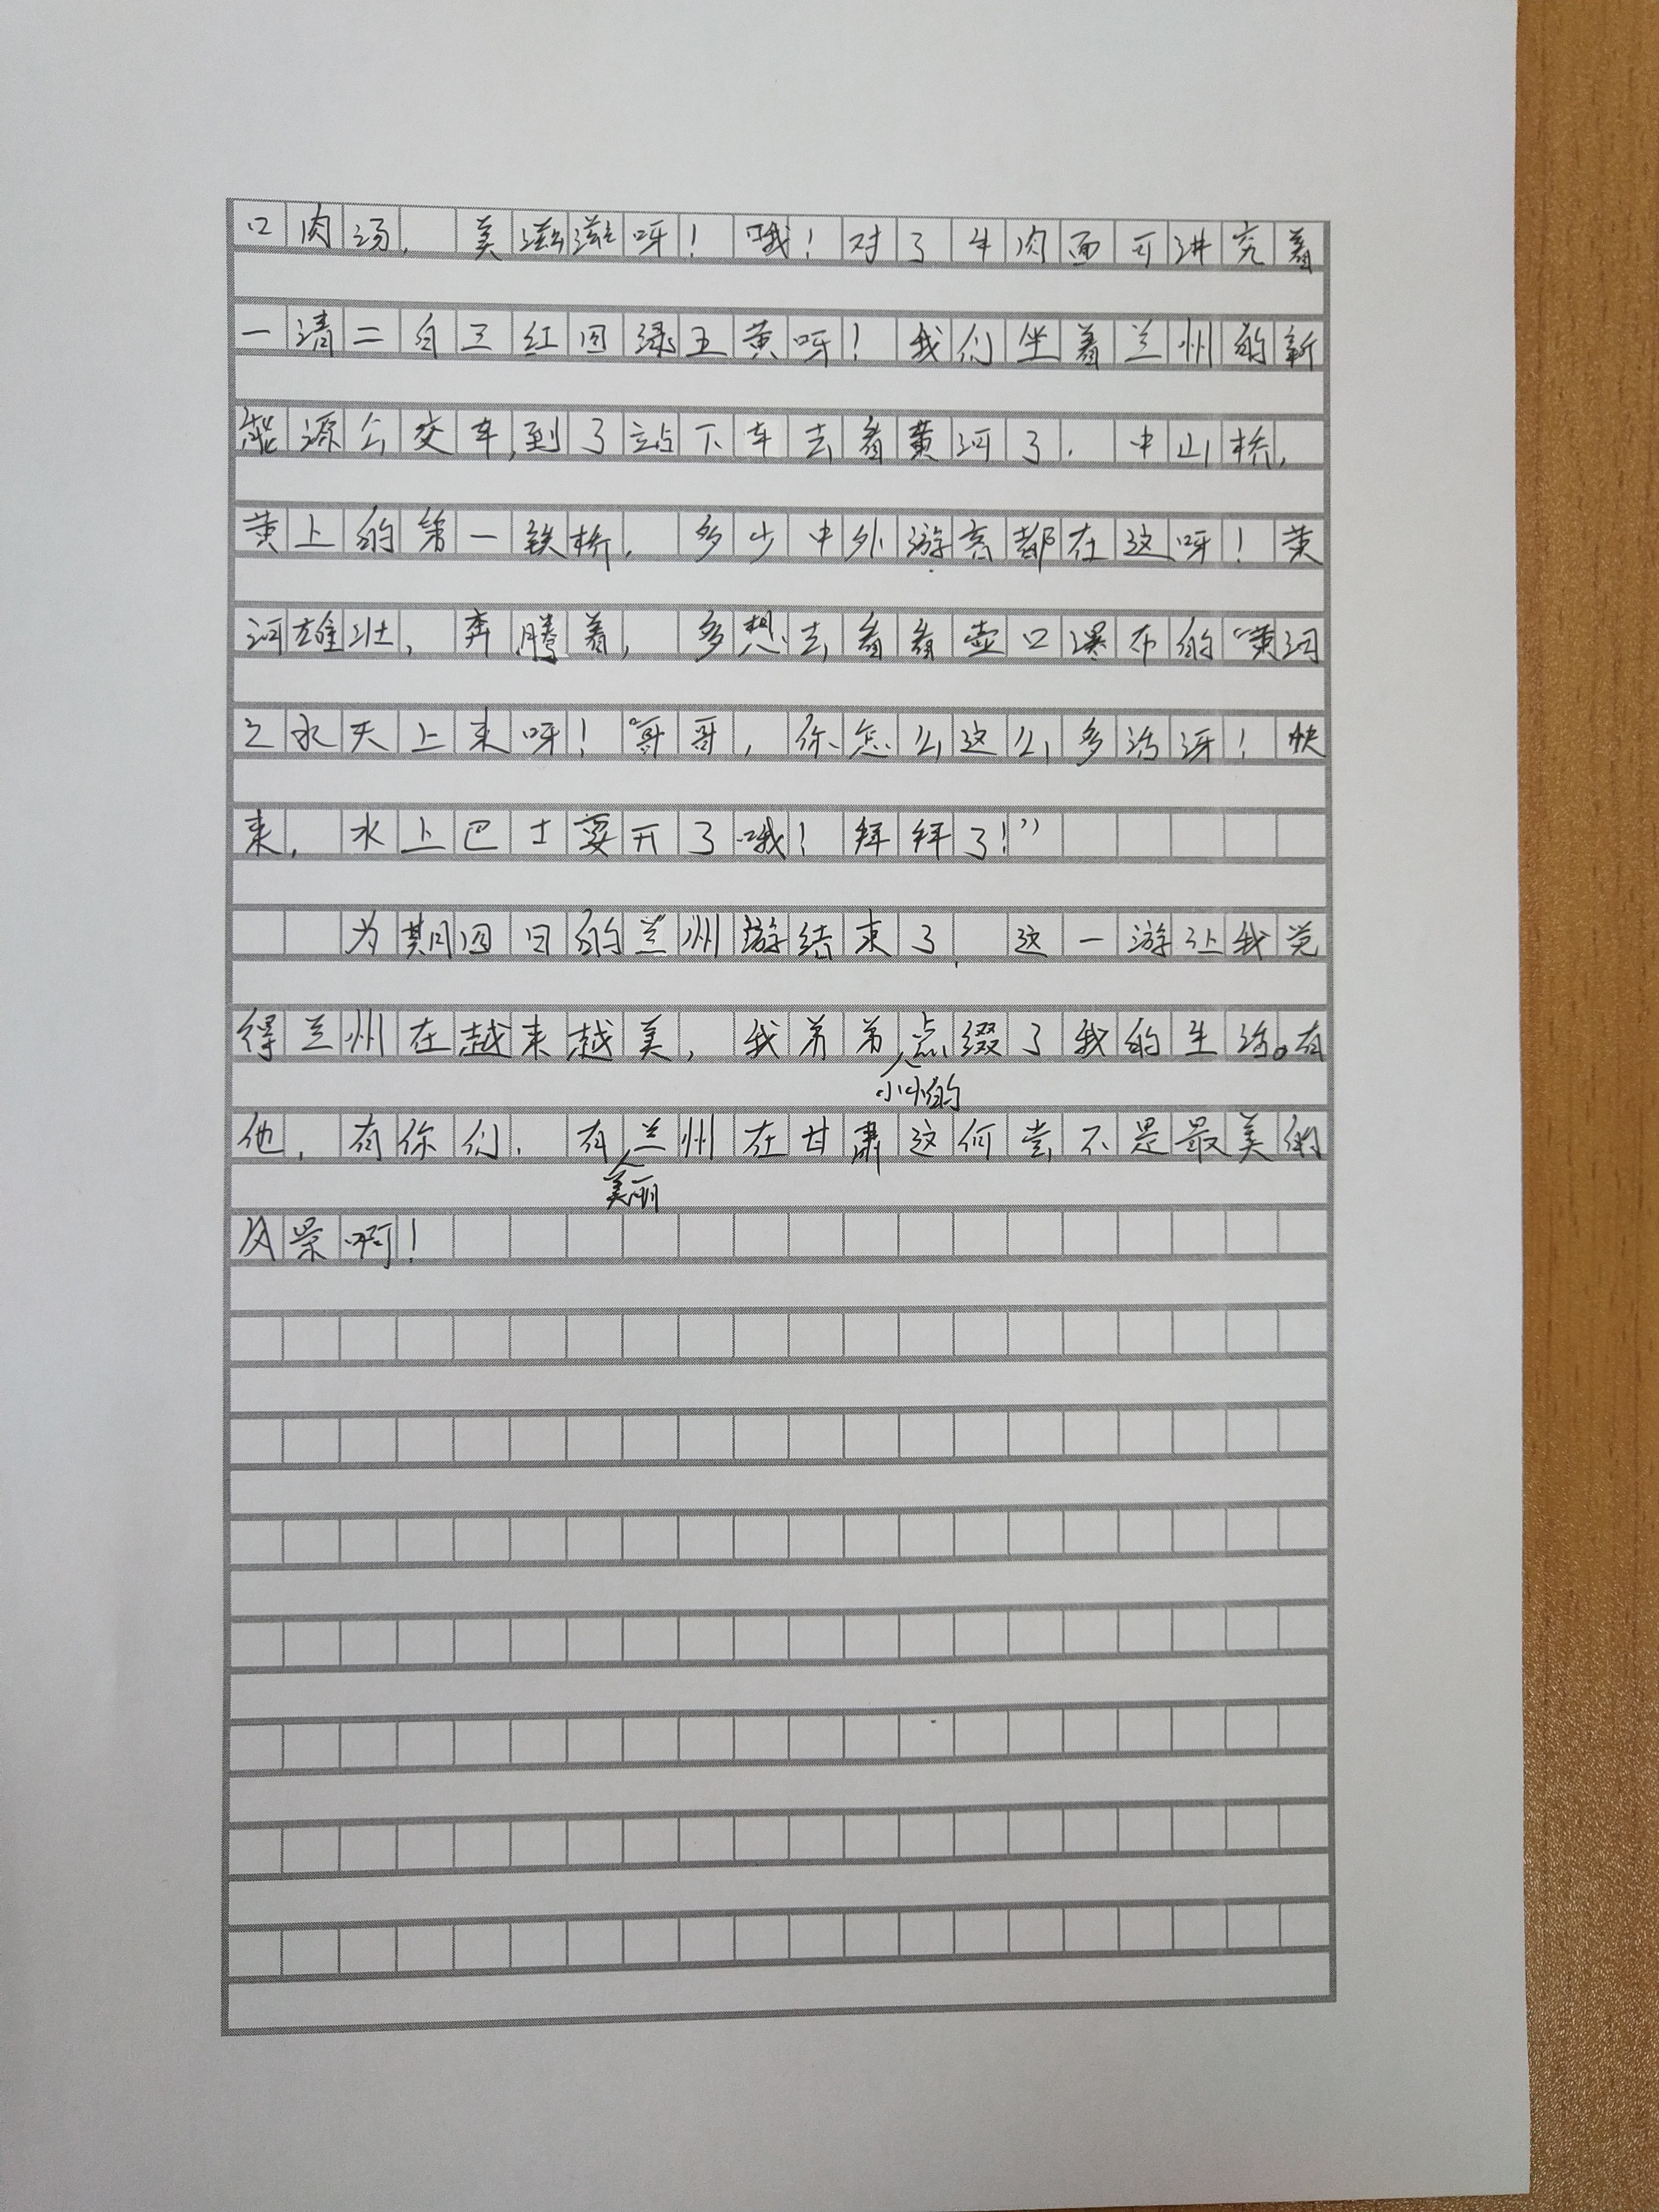 口肉汤，美滋滋呀！哦！对了牛肉面可讲究着
一清二白三红四绿五黄呀！我们坐着兰州的新
能源公交车，到了站下车去看黄河了。中山桥，
黄上的第一铁桥，多少中外游客都在这呀！黄
河雄壮，奔腾着，多想去看看壶口瀑布的“黄河
之水天上来呀！“哥哥，你怎么这么多话呀！快
来，水上巴士要开了哦！拜拜了！”
为期四日的兰州游结束了，这一游让我觉
得兰州在越来越美，我弟弟小小的点缀了我的生活。有
他，有你们，有美丽兰州在甘肃这何尝不是最美的
风景啊！